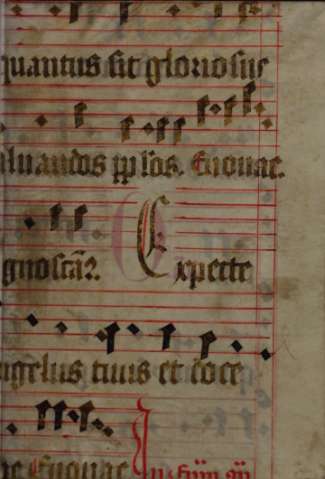 quantus sit gloriosus
saluandos pplos. Euouae.
gnoscat2. Expecte
angelus tuus et coce
ae Euouae